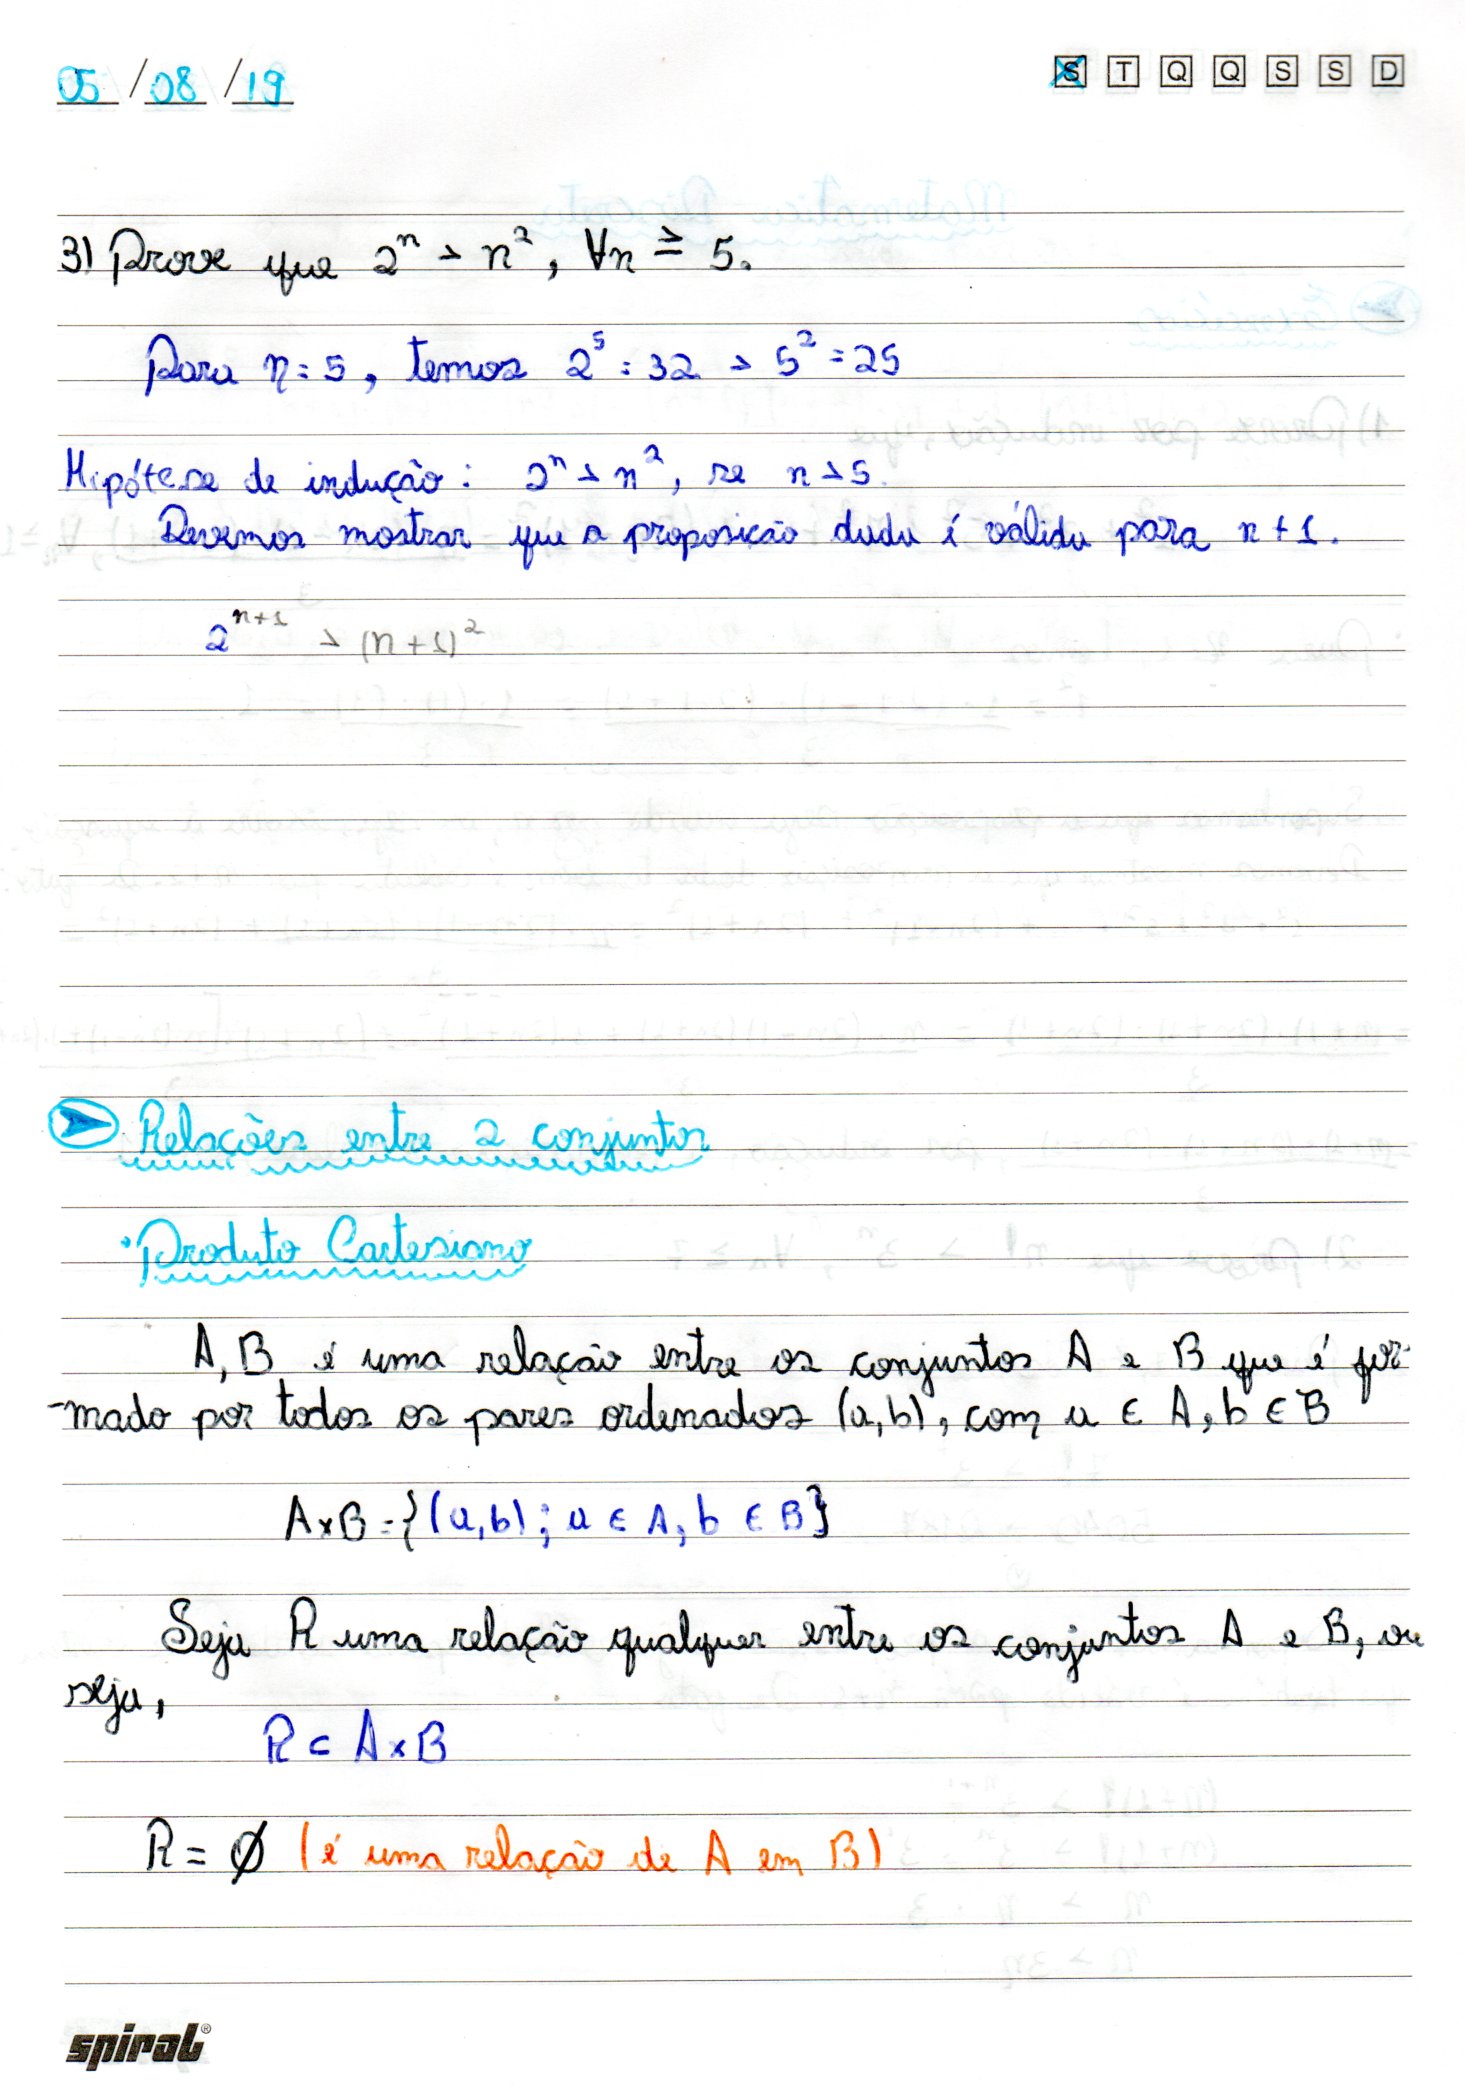 05/08/19 S T Q Q S S D
3) Prove que 2^n > n^2, ∀n ≥ 5.
Para n = 5, temos 2^5 = 32 > 5^2 = 25
Hipótese de indução: 2^n > n^2, se n > 5.
Devemos mostrar que a proposição dada é válida para n + 1.
2^{n+1} > (n+1)^2
Relações entre 2 conjuntos
• Produto Cartesiano
A, B é uma relação entre os conjuntos A e B que é for-
-mado por todos os pares ordenados (a,b), com a ∈ A, b ∈ B
A×B = {(a,b); a ∈ A, b ∈ B}
Seja R uma relação qualquer entre os conjuntos A e B, ou
seja,
R ⊂ A×B
R = ∅ (é uma relação de A em B)
spiral®